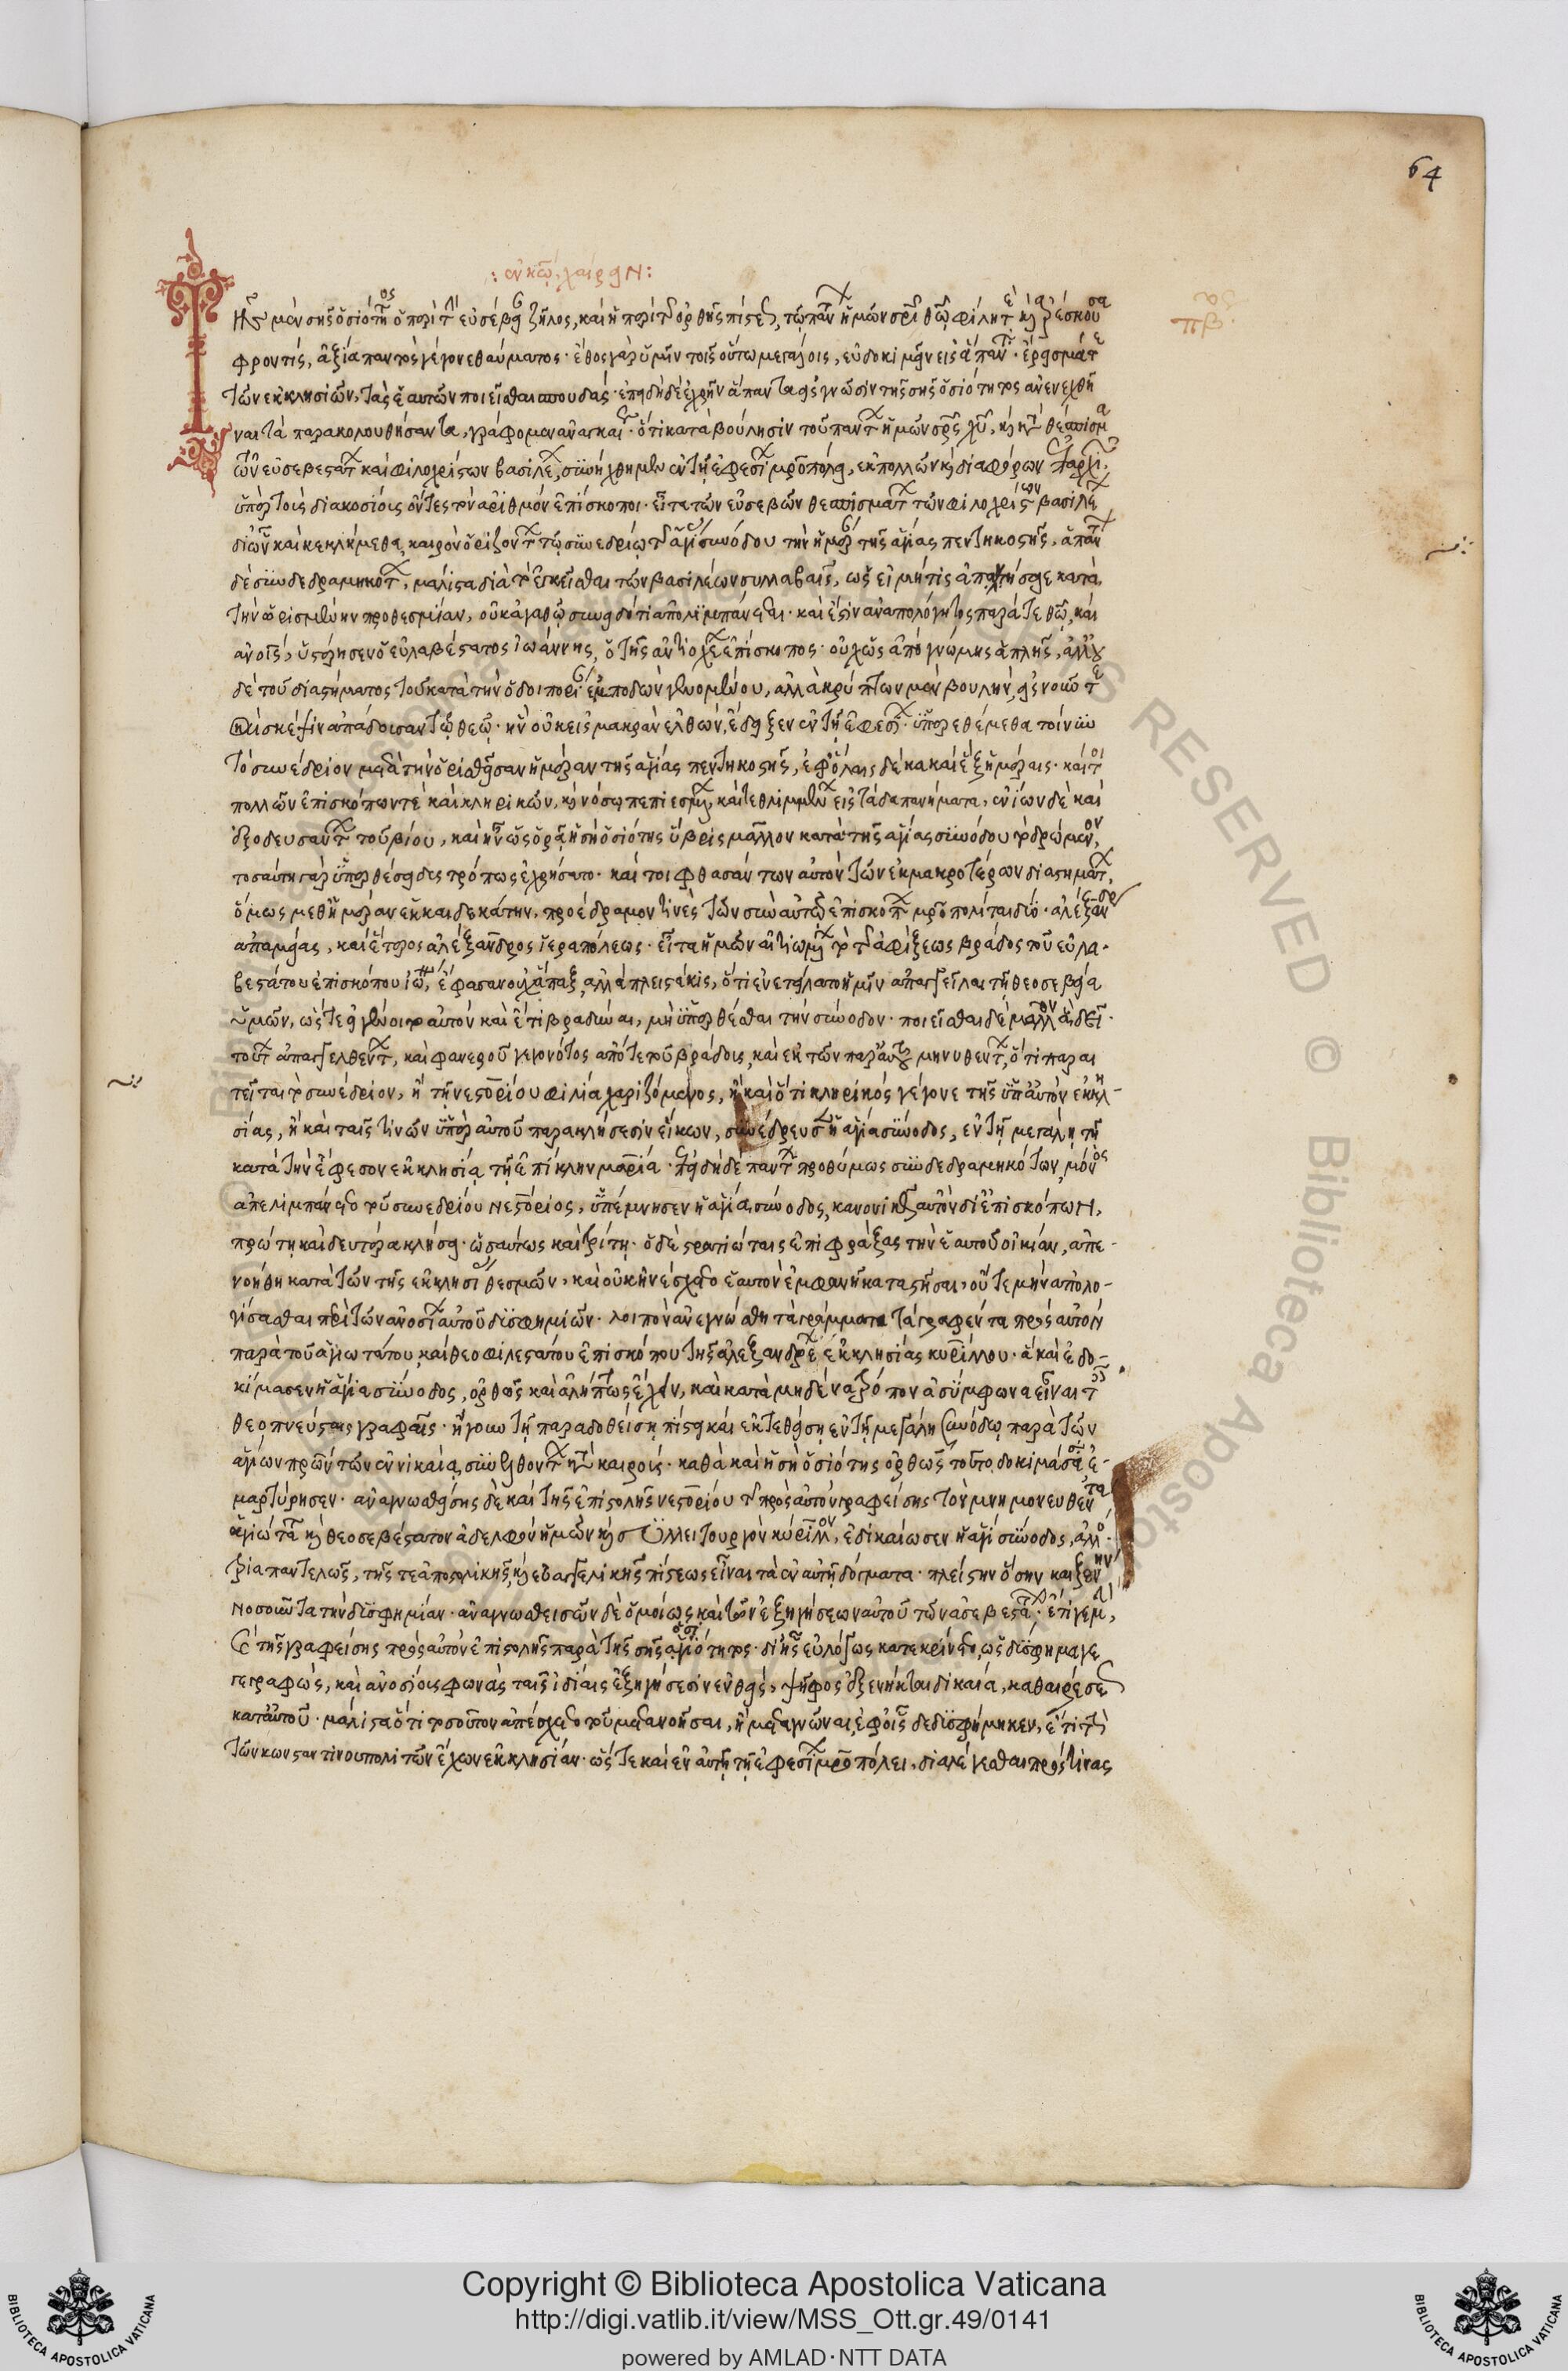 64
: ἐν κῶ χαίρειν:
Τῆς μὲν σῆς ὁσιότητος ὁ περὶ τὴν εὐσέβειαν ζῆλος, καὶ ἡ περὶ τῆς ὀρθῆς πίστεως, τῷ πάντων ἡμῶν σωτῆρι θεῷ φίλη τε καὶ ἀρέσκουσα
πβ
φροντὶς, ἀξία παντὸς γέγονε θαύματος· ἔθος γὰρ ὑμῖν τοῖς οὕτω μεγάλοις, εὐδοκιμεῖν εἰς ἅπαντα·
τῶν ἐκκλησιῶν, τὰς ἑαυτῶν ποιεῖσθαι σπουδάς· ἐπειδὴ δὲ ἐχρῆν ἅπαντα εἰς γνῶσιν τῆς σῆς ὁσιότητος ἀνενεχθῆ
ναι τὰ παρακολουθήσαντα, γράφομεν ἀναγκαίως· ὅτι κατὰ βούλησιν τοῦ πάντων ἡμῶν σρς χυ, καὶ θέσπισμα
τῶν εὐσεβεστάτων καὶ φιλοχρίστων βασιλέων, συνήχθημεν ἐν τῇ ἐφεσίων μροπόλει, ἐκ πολλῶν καὶ διαφόρων ἐπαρχιῶν,
ὑπὲρ τοὺς διακοσίους ὄντες τὸν ἀριθμὸν ἐπίσκοποι· εἶτα τῶν εὐσεβῶν θεσπισμάτων τῶν φιλοχρίστων βασιλέων
δι' ὧν καὶ κεκλήμεθα, καιρὸν ὁριζόντων τῷ συνεδρίῳ τῆς ἁγίας συνόδου τὴν ἡμέραν τῆς ἁγίας πεντηκοστῆς, ἁπάντων
δὲ συνδεδραμηκότων, μάλιστα διὰ τὸ ἐγκεῖσθαι τῶν βασιλέων συλλαβαῖς, ὡς εἰ μή τις ἀπαντήσειε κατὰ
τὴν ὡρισμένην προθεσμίαν, οὐκ ἀγαθῷ συνειδότι ἀπολιμπάνεται· καὶ ἔστιν ἀναπολόγητος παρά τε θῶ, καὶ
ἀνοῖς, ὑστέρησεν ὁ εὐλαβέστατος ἰωάννης, ὁ τῆς ἀντιοχέων ἐπίσκοπος· οὐχ ὡς ἀπὸ γνώμης ἁπλῆς,
δὲ τοῦ διαστήματος τοῦ κατὰ τὴν ὁδοιπορίαν ἐμποδὼν γενομένου, ἀλλὰ κρύπτων μὲν βουλὴν,
ἐπίσκεψιν ἀπᾴδουσαν τῷ θεῷ· ἣν οὐκ εἰς μακρὰν ἐλθὼν, ἔδειξεν ἐν τῇ ἐφεσίων· ὑπερεθέμεθα τοίνυν
τὸ συνέδριον μετὰ τὴν ὁρισθεῖσαν ἡμέραν τῆς ἁγίας πεντηκοστῆς, ἐφ' ὅλαις δέκα καὶ ἓξ ἡμέραις· καίτοι
πολλῶν ἐπισκόπων τὲ καὶ κληρικῶν, καὶ νόσῳ πεπιεσμένων, καὶ τεθλιμμένων εἰς τὰ δαπανήματα, ἐνίων δὲ καὶ
ἐξοδευσάντων τοῦ βίου, καὶ ἦν ὡς ὁρᾷ ἡ σὴ ὁσιότης ὕβρις μᾶλλον κατὰ τῆς ἁγίας συνόδου τὸ δρώμενον,
τοσαύτῃ γὰρ ὑπερθέσει δυστρόπως ἐχρήσατο· καίτοι φθασάντων αὐτὸν τῶν ἐκ μακροτέρων διαστημάτων,
ὅμως μεθ' ἡμέραν ἑκκαιδεκάτην, προέδραμόν τινες τῶν σὺν αὐτῷ ἐπισκόπων μροπολῖται δύο· ἀλέξανδρος
ἀπαμείας, καὶ ἕτερος ἀλέξανδρος ἱεραπόλεως· εἶτα ἡμῶν αἰτιωμένων τὸ τῆς ἀφίξεως βράδος τοῦ εὐλα-
βεστάτου ἐπισκόπου ἰω, ἔφασαν οὐχ ἅπαξ, ἀλλὰ πλειστάκις, ὅτι ἐνετείλατο ἡμῖν ἀπαγγεῖλαι τῇ θεοσεβείᾳ
ὑμῶν, ὥστε εἰ γένοιτο αὐτὸν καὶ ἔτι βραδῦναι, μὴ ὑπερθέσθαι τὴν σύνοδον· ποιεῖσθαι δὲ μᾶλλον ἃ δεῖ·
τούτων ἀπαγγελθέντων, καὶ φανεροῦ γεγονότος ἀπό τε τοῦ βράδους, καὶ ἐκ τῶν παρ' αὐτοῦ μηνυθέντων, ὅτι παραι
τεῖται τὸ συνέδριον, ἢ τῇ νεστορίου φιλίᾳ χαριζόμενος, ἢ καὶ ὅτι κληρικὸς γέγονε τῆς ὑπ' αὐτὸν ἐκκλη-
σίας, ἢ καὶ ταῖς τινῶν ὑπὲρ αὐτοῦ παρακλήσεσιν εἴκων, συνέδρευσεν ἡ ἁγία σύνοδος, ἐν τῇ μεγάλῃ τῇ
κατὰ τὴν ἔφεσον ἐκκλησίᾳ τῇ ἐπίκλην μαρίᾳ· ἐπειδὴ δὲ πάντων προθύμως συνδεδραμηκότων, μόνος
ἀπελιμπάνετο τοῦ συνεδρίου νεστόριος, ὑπέμνησεν ἡ ἁγία σύνοδος, κανονικῶς αὐτὸν δι' ἐπισκόπων,
πρώτῃ καὶ δευτέρᾳ κλήσει· ὡσαύτως καὶ τρίτῃ· ὁ δὲ στρατιώταις ἐπιφράξας τὴν ἑαυτοῦ οἰκίαν, ἀπε-
νοήθη κατὰ τῶν τῆς ἐκκλησίας θεσμῶν, καὶ οὐκ ἠνέσχετο ἑαυτὸν ἐμφανῆ καταστῆσαι, οὔτε μὴν ἀπολο-
γήσασθαι περὶ τῶν ἀνοσίων αὐτοῦ δυσφημιῶν· λοιπὸν ἀνεγνώσθη τὰ γράμματα τὰ γραφέντα πρὸς αὐτὸν
παρὰ τοῦ ἁγιωτάτου, καὶ θεοφιλεστάτου ἐπισκόπου τῆς ἀλεξανδρέων ἐκκλησίας κυρίλλου· ἃ καὶ ἐδο-
κίμασεν ἡ ἁγία σύνοδος, ὀρθῶς καὶ ἀλήπτως ἔχειν, καὶ κατὰ μηδένα τρόπον ἀσύμφωνα εἶναι τοῖς
θεοπνεύστοις γραφαῖς· ἤγουν τῇ παραδοθείσῃ πίστει καὶ ἐκτεθείσῃ ἐν τῇ μεγάλῃ συνόδῳ παρὰ τῶν
ἁγίων πρων τῶν ἐν νικαίᾳ συνελθόντων κατὰ καιρούς· καθὰ καὶ ἡ σὴ ὁσιότης ὀρθῶς τοῦτο δοκιμάσασα ἐ-
μαρτύρησεν· ἀναγνωσθείσης δὲ καὶ τῆς ἐπιστολῆς νεστορίου τῆς πρὸς αὐτὸν γραφείσης τὸν μνημονευθέντα
ἁγιώτατον καὶ θεοσεβέστατον ἀδελφὸν ἡμῶν καὶ συλλειτουργὸν κύριλλον, ἐδικαίωσεν ἡ ἁγία σύνοδος, ἀλλό-
τρια παντελῶς, τῆς τε ἀποστολικῆς, καὶ εὐαγγελικῆς πίστεως εἶναι τὰ ἐν αὐτῇ δόγματα· πλείστην ὅσην καὶ ξένην
νοσοῦντα τὴν δυσφημίαν· ἀναγνωσθεισῶν δὲ ὁμοίως καὶ τῶν ἐξηγήσεων αὐτοῦ τῶν ἀσεβεστάτων· ἔτι γε μὴν,
καὶ τῆς γραφείσης πρὸς αὐτὸν ἐπιστολῆς παρὰ τῆς σῆς ἁγιότητος· δι' ἧς εὐλόγως κατεκρίνετο, ὡς δύσφημα γε
γεγραφὼς, καὶ ἀνοσίους φωνὰς ταῖς ἰδίαις ἐξηγήσεσιν ἐνθεὶς, ψῆφος ἐξενήνεκται δικαία, καθαιρέσεως
κατ' αὐτοῦ· μάλιστα ὅτι τοσοῦτον ἀπέσχετο τοῦ μετανοῆσαι, ἢ μεταγνῶναι, ἐφ' οἷς δεδυσφήμηκεν, ἔτι τὴν
τῶν κωνσταντινουπολιτῶν ἔχων ἐκκλησίαν· ὥστε καὶ ἐν αὐτῇ τῇ ἐφεσίων μροπόλει, διαλέγεσθαι πρός τινας
Copyright © Biblioteca Apostolica Vaticana
http://digi.vatlib.it/view/MSS_Ott.gr.49/0141
powered by AMLAD·NTT DATA